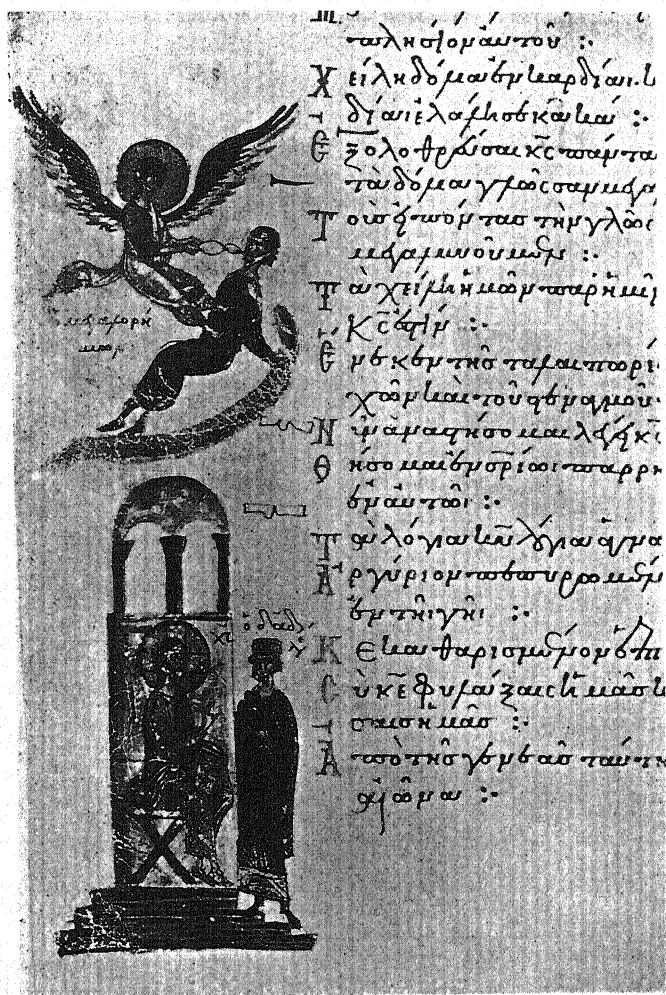 πλησίον αὐτοῦ :·
Χείλη δόλια ἐν καρδίαι· κ
δίαι ἐλάλησε κακά :·
Ἐξολοθρεύσαι κ̅ς̅ πάντα
τὰ δόλια γλῶσσαν μεγα
Τοὺς εἰπόντας τὴν γλῶσ
μεγαλυνοῦμεν :·
Τὰ χείλη ἡμῶν παρ ἡμῖ
κ̅ς̅ ἐστίν :·
Ἕνεκεν τῆς ταλαιπωρί
χῶν καὶ τοῦ στεναγμοῦ
Νῦν ἀναστήσομαι λέγει κ̅ς̅
Θήσομαι ἐν σρίωι παρρη
ἐν αὐτῶι :·
Τὰ λόγια κυ λόγια ἁγνα
Ἀργύριον πεπυρωμέν
ἐν τῆι γῆι :·
Κεκαθαρισμένον ἑπ
Σὺ κ̅ε̅ φυλάξαις ἡμᾶς κ
σαις ἡμᾶς :·
Ἀπὸ τῆς γενεᾶς ταύτη
αἰῶνα :·
ὁ δαδ